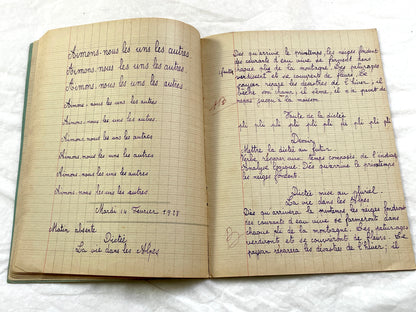 Aimons-nous les uns les autres
Aimons-nous les uns les autres.
Aimons-nous les uns les autres.
Aimons-nous les uns les autres
Aimons-nous les uns les autres.
Aimons-nous les uns les autres
Aimons-nous les uns les autres
Aimons-nous les uns les autres
Aimons-nous les uns les autres.
Mardi 14 Février 1928
Matin absente
Dictée
La vie dans les Alpes
Dès qu'arrive le printemps, les neiges fondent
des courants d'eau vive se forment dans
chaque pli de la montagne. Les pâturages
verdissent et se couvrent de fleurs. Le
paysan répare les désastres de l'hiver, il
bêche son champ, il sème, il
jusqu'à la maison.
Faute de la dictée
pli pli pli pli pli pli pli pli pli
Devoir
Mettre la dictée au futur
Verbe regarder aux temps composés de l'indicatif
Analyse logique: Dès qu'arrive le printemps
les neiges fondent.
Dictée mise au
La vie dans les Alpes
Dès qu'arrivera le printemps les neiges fondront
des courants d'eau vive se formeront dans
chaque pli de la montagne. Les pâturages
verdiront et se couvriront de fleurs. Le
paysan réparera les désastres de l'hiver; il